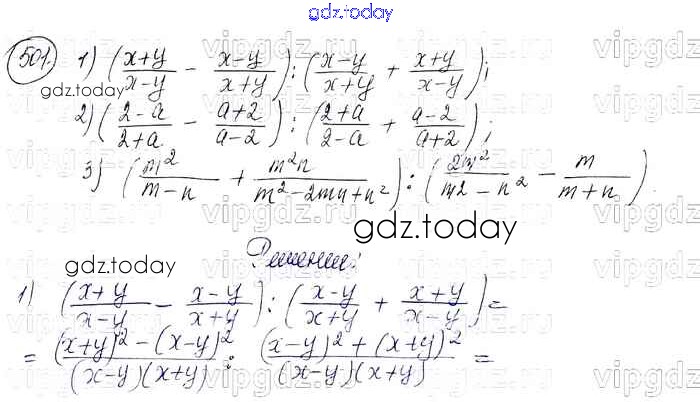 gdz.today
501. 1) (x+y/x-y - x-y/x+y) : (x-y/x+y + x+y/x-y);
gdz.today
2) (2-a/2+a - a+2/a-2) : (2+a/2-a + a-2/a+2);
3) (m²/m-n + m²n/m²-2mn+n²) : (2m²/m2-n² - m/m+n).
gdz.today
gdz.today
Решение:
1) (x+y/x-y - x-y/x+y) : (x-y/x+y + x+y/x-y) =
= (x+y)²-(x-y)²/(x-y)(x+y) : (x-y)²+(x+y)²/(x-y)(x+y) =